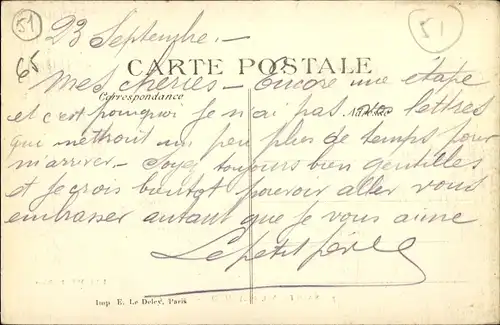 51
51
23 Septembre. -
65
CARTE POSTALE
Mes chéries - Encore une étape
Correspondance
Adresse
et c'est pourquoi je n'ai pas vos lettres
qui mettront un peu plus de temps pour
m'arriver - Soyez toujours bien gentilles
et je crois bientot pouvoir aller vous
embrasser autant que je vous aime
Le petit père
Imp. E. Le Deley, Paris